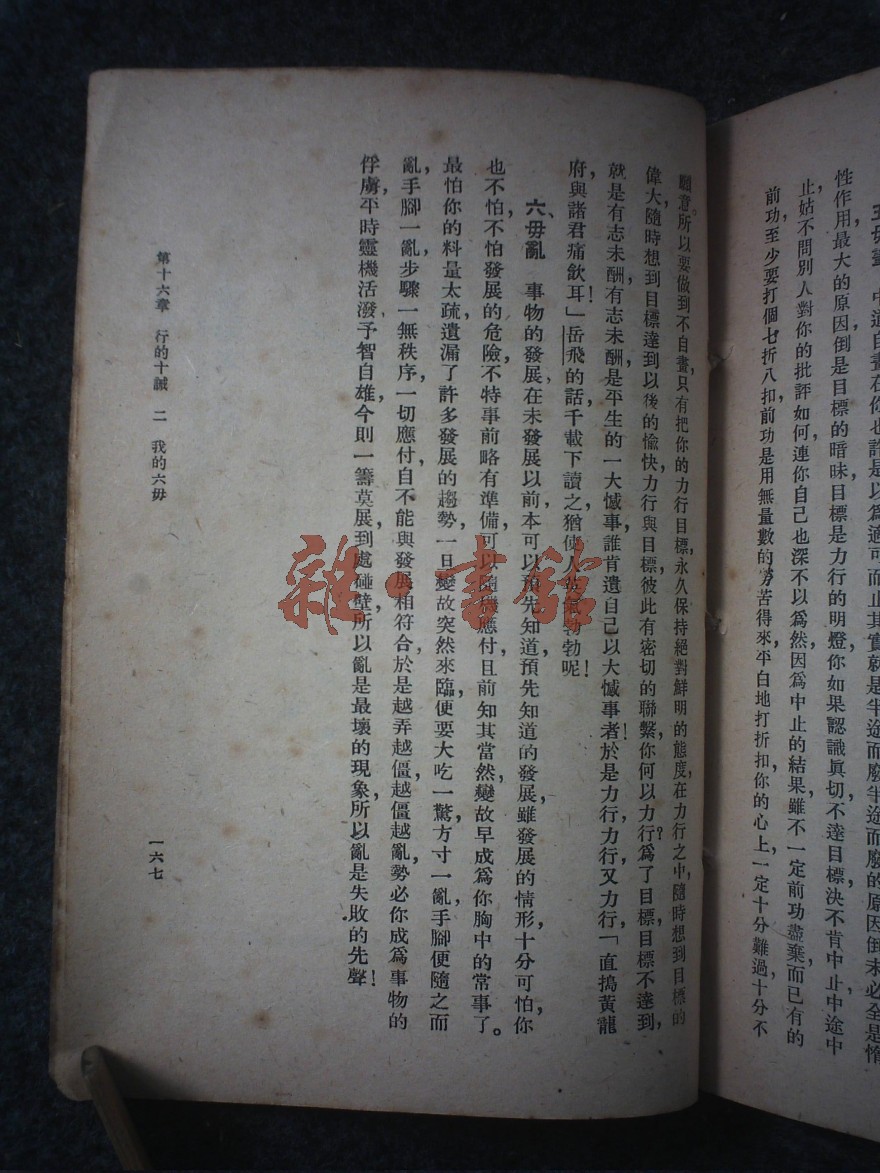 性作用最大的原因，倒是目標的暗昧，目標是力行的明燈，你如果認識眞切，不達目標，決不肯中止，中途中
止，姑不問別人對你的批評如何，連你自己也深不以爲然，因爲中止的結果，雖不一定前功盡棄，而已有的
前功，至少要打個七折八扣，前功是用無量數的勞苦得來，平白地打折扣，你的心上一定十分難過，十分不
願意。所以要做到不自畫，只有把你的力行目標，永久保持絕對鮮明的態度，在力行之中，隨時想到目標的
偉大，隨時想到目標達到以後的愉快，力行與目標，彼此有密切的聯繫，你何以力行？爲了目標，目標不達到，
就是有志未酬，有志未酬，是平生的一大憾事，誰肯遺自己以大憾事者！於是力行，力行，又力行，「直搗黃龍
府，與諸君痛飲耳！」岳飛的話，千載下讀之，猶使人英氣勃勃呢！
六、毋亂　事物的發展，在未發展以前，本可以預先知道，預先知道的發展，雖發展的情形十分可怕，你
也不怕，不怕發展的危險，不特事前略有準備，可以隨機應付，且前知其當然，變故早成爲你胸中的常事了。
最怕你的料量太疏，遺漏了許多發展的趨勢，一旦變故突然來臨，便要大吃一驚，方寸一亂，手腳便隨之而
亂，手腳一亂，步驟一無秩序，一切應付，自不能與發展相符合，於是越弄越僵，越僵越亂，勢必你成爲事物的
俘虜，平時靈機活潑，予智自雄，今則一籌莫展，到處碰壁，所以亂是最壞的現象，所以亂是失敗的先聲！
第十六章　行的十誡　二　我的六毋
一六七
雜·書館